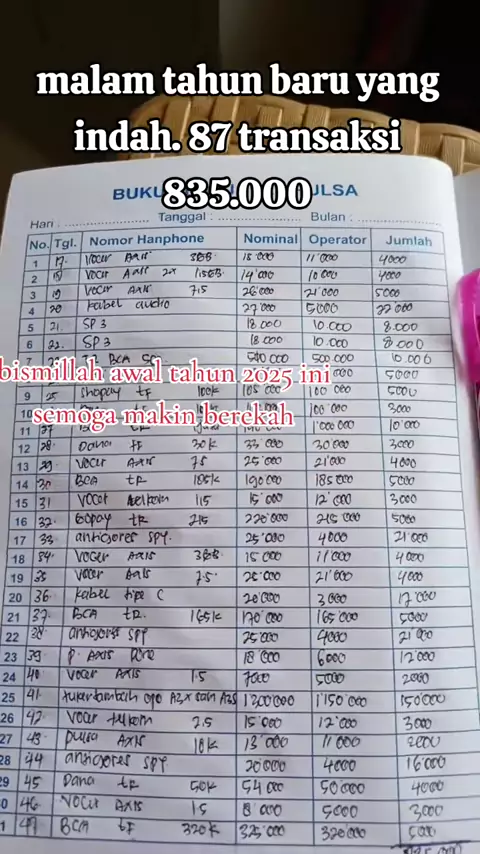 malam tahun baru yang
indah. 87 transaksi
835.000
BUKU ULSA
Hari : Tanggal : Bulan :
No. Tgl. Nomor Hanphone Nominal Operator Jumlah
1 17. Vocer Axis 3GB 15.000 11.000 4000
2 18 Vocer Axis 2x 1.5GB 14.000 10.000 4000
3 19 Vocer Axis 7.5 26.000 21.000 5000
4 20 Kabel audio 27.000 5000 22.000
5 21. SP 3 18.000 10.000 8.000
6 22. SP 3 18.000 10.000 8.000
7 BCA 510.000 500.000 10.000
bismillah awal tahun 2025 ini
000 5000
9 25 Shopay tf 100k 105.000 100.000 5000
semoga makin berekah
10 100.000 3000
11 27 1.000.000 10.000
12 28. Dana tf 30k 33.000 30.000 3000
13 29. Vocer Axis 7.5 25.000 21.000 4000
14 30 BCA tr. 185k 190.000 185.000 5000
15 31 Vocer telkom 1.5 15.000 12.000 3000
16 32. Gopay tr 215 220.000 215.000 5000
17 33. anticjores spy. 25.000 4000 21.000
18 34. Vocer Axis 3GB. 15.000 11.000 4000
19 35 Vocer Axis 7.5. 25.000 21.000 4000
20 36. Kabel tipe C 20.000 3.000 17.000
21 37. BCA tr. 165k 170.000 165.000 5000
22 38. anticjores spy 25.000 4000 21.000
23 39. P. Axis 18.000 6000 12.000
24 40 Vocer Axis 1.5 7000 5000 2000
25 41. tukertambah opo A3x A3s 1.300.000 1.150.000 150.000
26 42. Vocer telkom 2.5 15.000 12.000 3000
27 43. pulsa Axis 10k 13.000 11.000 2000
28 44 anticjores spy 20.000 4000 16.000
29 45 Dana tr 50k 54.000 50.000 4000
0 46. Vocer Axis 1.5 8.000 5000 3000
1 47 BCA tf 320k 325.000 320.000 5000